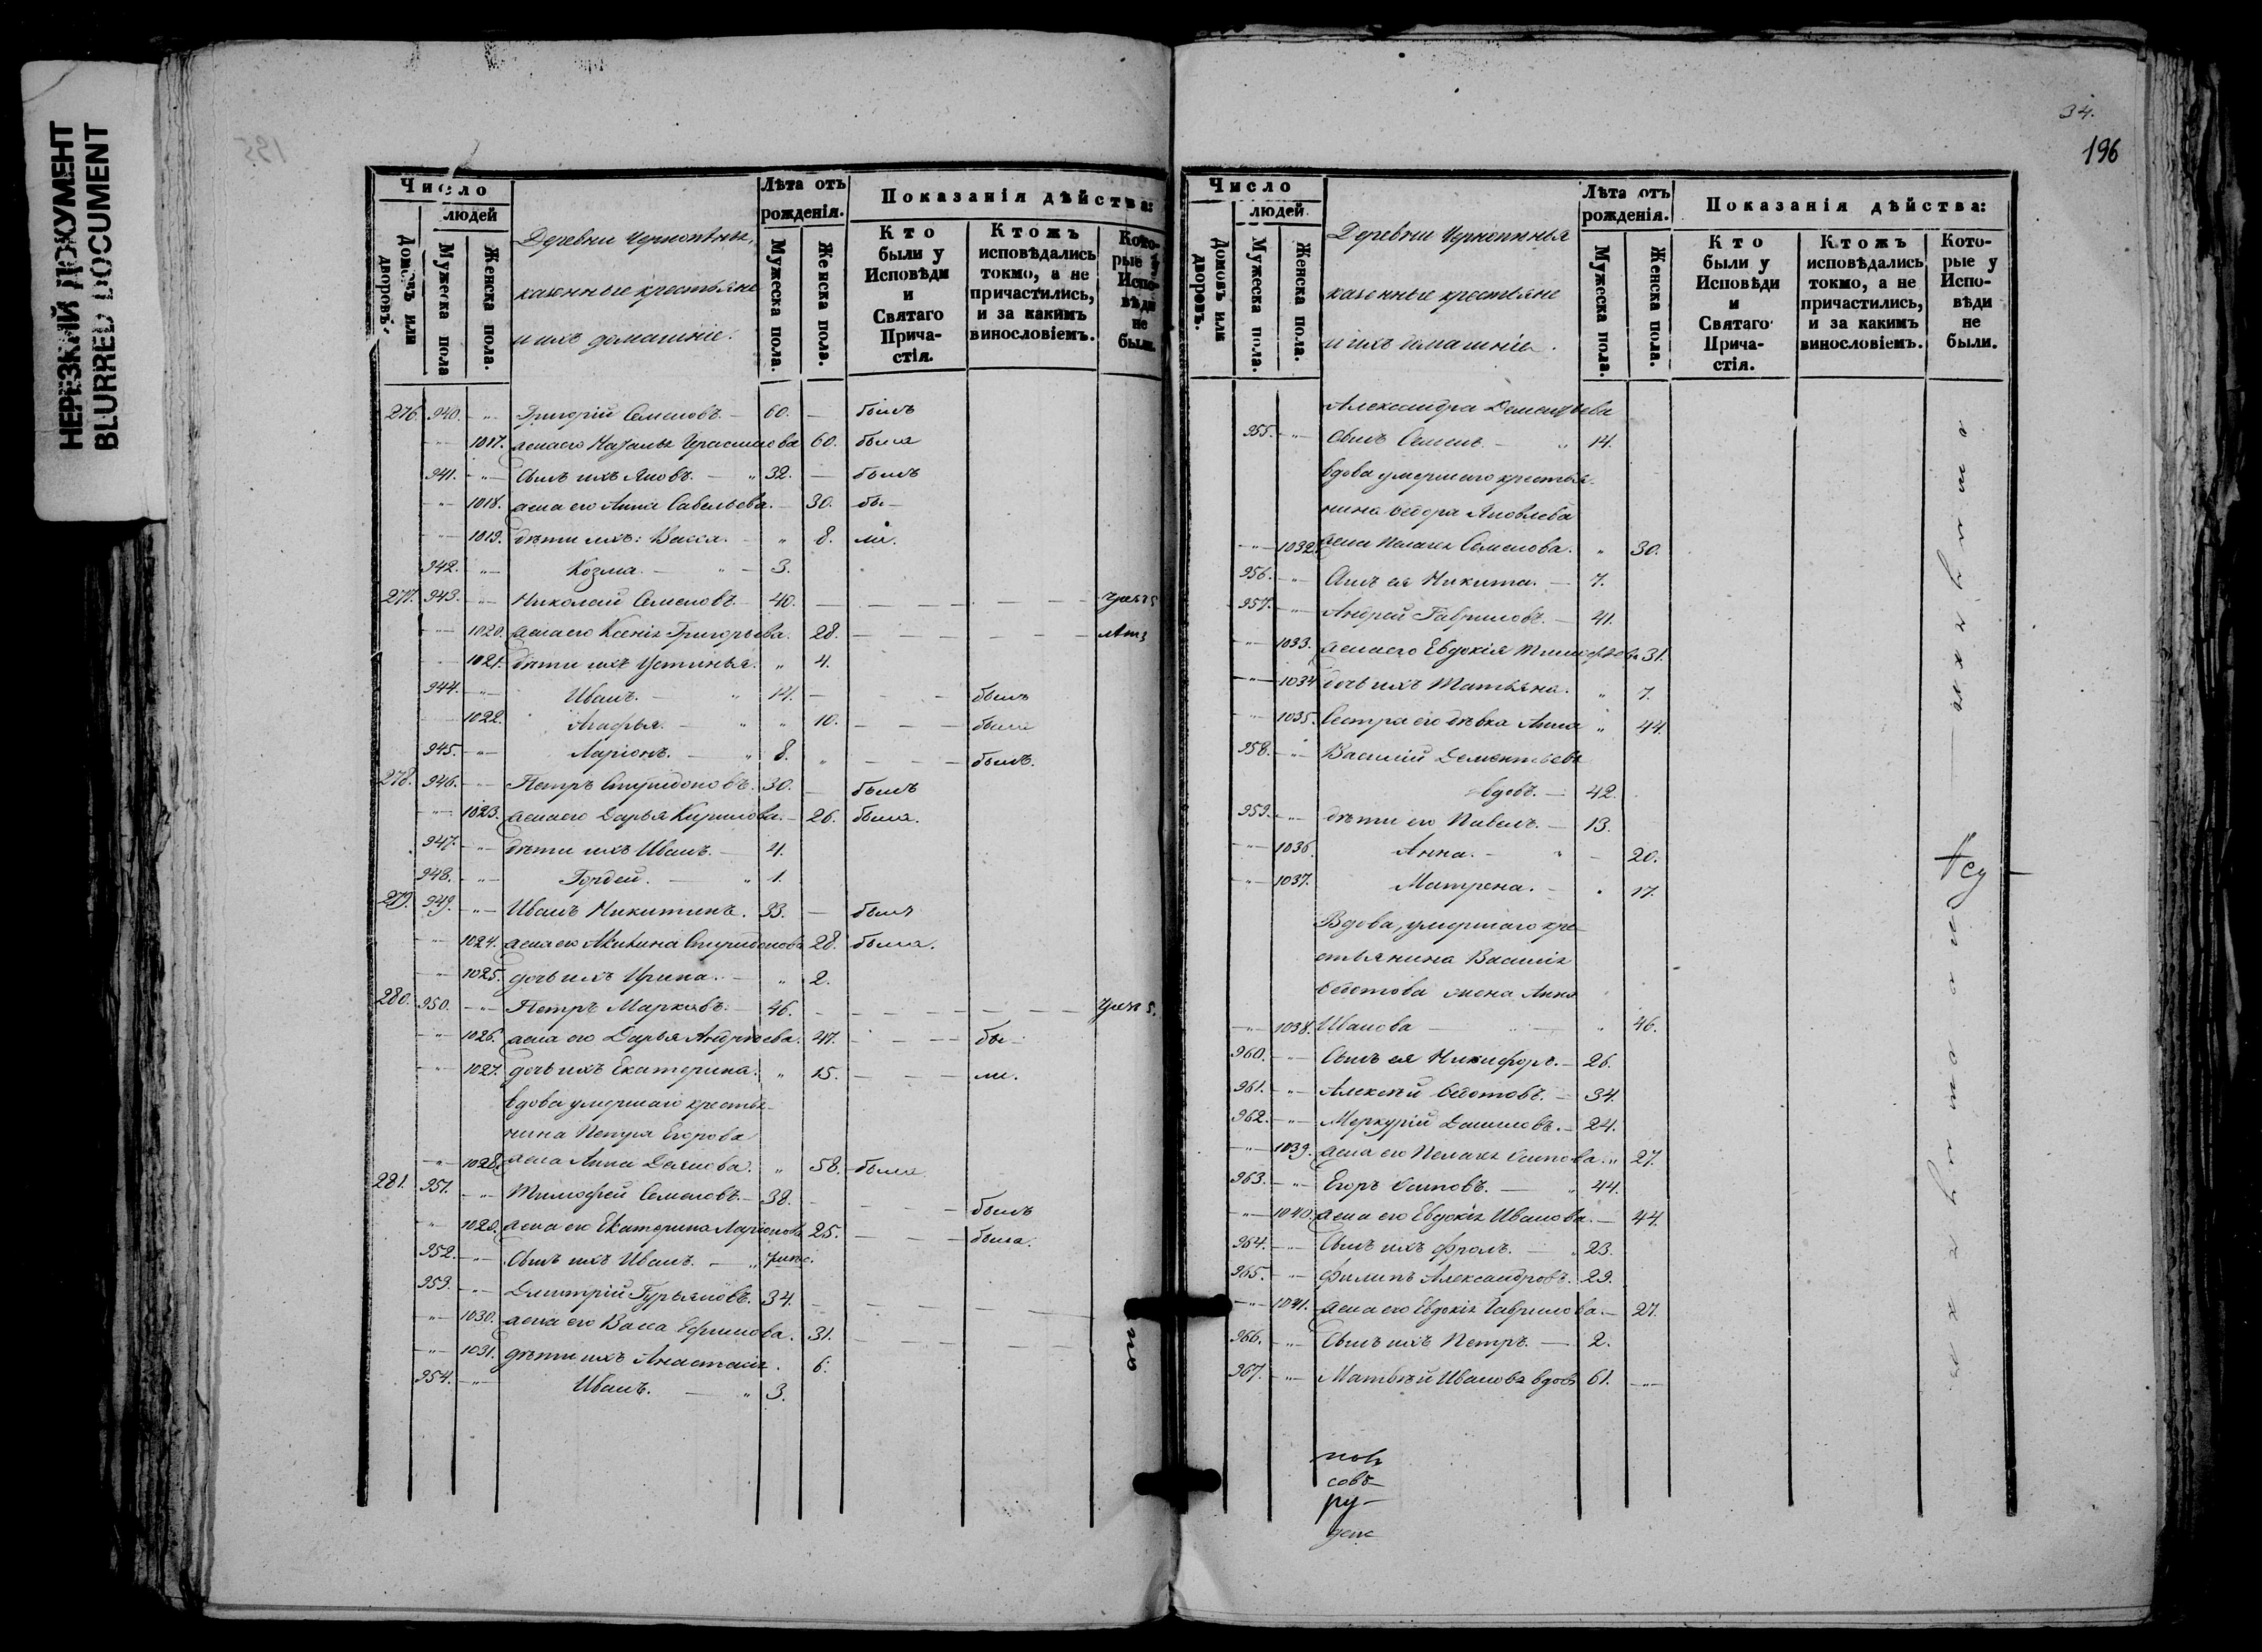 НЕРЕЗКИЙ ДОКУМЕНТ
BLURRED DOCUMENT
Число
людей
Домовъ или дворовъ.
Мужеска пола
Женска пола.
Деревни
казенные крестьяне
и ихъ домашніе.
Лѣта отъ рожденія.
Мужеска пола.
Женска пола.
Показанія дѣйства:
Кто были у Исповѣди и Святаго Причастія.
Ктожъ исповѣдались токмо, а не причастились, и за какимъ винословіемъ.
Которые у Исповѣди не были.
276. 940. Григорій Семеновъ. 60. — былъ
1017. жена его Наталья Герасимова 60. была
941. Сынъ ихъ Яковъ. 32. — былъ
1018. жена его Анна Савельева. 30. бы-
1019. дѣти ихъ: Васса. 8. ли.
942. Козма. 3.
277. 943. Николай Семеновъ. 40.
1020. жена его Ксенія Григорьева. 28.
1021. дѣти ихъ Устинья. 4.
944. Иванъ. 14. былъ
1022. Агафья. 10. была
945. Ларіонъ. 8. былъ.
278. 946. Петръ Спиридоновъ. 30. — былъ
1023. жена его Дарья Кирилова. 26. была.
947. дѣти ихъ Иванъ. 4.
948. Гордей. 1.
279. 949. Иванъ Никитинъ. 33. — былъ
1024. жена его Спиридонова 28. была.
1025. дочь ихъ Ирина. 2.
280. 950. Петръ Марковъ. 46.
1026. жена его Дарья Андреева. 47. бы-
1027. дочь ихъ Екатерина. 15. ли.
вдова умершаго кресть-
нина Петра Егорова
1028. жена Анна 58. была
281. 951. Тимофей Семеновъ. 38. былъ
1029. жена его Екатерина Ларіонова 25. была.
952. Сынъ ихъ Иванъ.
953. Дмитрій Гурьяновъ. 34.
1030. жена его Васса Ефимова. 31.
1031. дѣти ихъ Анастасія. 6.
954. Иванъ. 3.
34.
196
Число
людей.
Домовъ или дворовъ.
Мужеска пола.
Женска пола.
Деревни
казенные крестьяне
и ихъ домашніе.
Лѣта отъ рожденія.
Мужеска пола.
Женска пола.
Показанія дѣйства:
Кто были у Исповѣди и Святаго Причастія.
Ктожъ исповѣдались токмо, а не причастились, и за какимъ винословіемъ.
Которые у Исповѣди не были.
Александра Дементьева
955. Сынъ Семенъ. 14.
вдова умершаго кресть-
нина Ѳедора Яковлева
1032. жена Пелагея Семенова. 30.
956. Сынъ ея Никита. 7.
957. Андрей Гавриловъ. 41.
1033. жена его Евдокія Тимофѣева 31.
1034. дочь ихъ Татьяна. 7.
1035. Сестра его дѣвка Анна 44.
958. Василій Дементьевъ
вдовъ. 42.
959. дѣти его Павелъ. 13.
1036. Анна. 20.
1037. Матрена. 17.
Вдова, умершаго кре-
стьянина Василія
Ѳедотова жена Анна
1038. Иванова 46.
960. Сынъ ея Никифоръ. 26.
961. Алексѣй Ѳедотовъ. 34.
962. Меркурій Даниловъ. 24.
1039. жена его Пелагея Осипова. 27.
963. Егоръ Осиповъ. 44.
1040. жена его Евдокія Иванова. 44.
964. Сынъ ихъ Фролъ. 23.
965. Филипъ Александровъ. 29.
1041. жена его Евдокія Гаврилова. 27.
966. Сынъ ихъ Петръ. 2.
967. Матвѣй Ивановъ вдовъ 61.